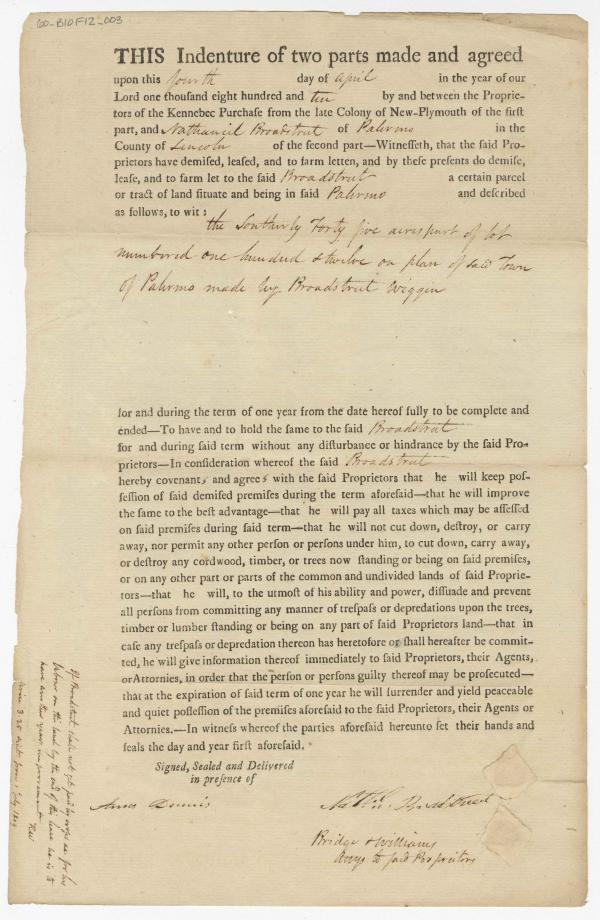 60-B10F12_003
THIS Indenture of two parts made and agreed
upon this fourth day of April in the year of our
Lord one thousand eight hundred and ten by and between the Proprie-
tors of the Kennebec Purchase from the late Colony of New-Plymouth of the first
part, and Nathaniel Broadstreet of Palermo in the
County of Lincoln of the second part—Witnesseth, that the said Pro-
prietors have demised, leased, and to farm letten, and by these presents do demise,
lease, and to farm let to the said Broadstreet a certain parcel
or tract of land situate and being in said Palermo and described
as follows, to wit:
the Southerly Forty five acres part of lot
numbered one hundred & twelve on plan of said Town
of Palermo made by Broadstreet Wiggin
for and during the term of one year from the date hereof fully to be complete and
ended—To have and to hold the same to the said Broadstreet
for and during said term without any disturbance or hindrance by the said Pro-
prietors—In consideration whereof the said Broadstreet
hereby covenants and agrees with the said Proprietors that he will keep pos-
session of said demised premises during the term aforesaid—that he will improve
the same to the best advantage—that he will pay all taxes which may be assessed
on said premises during said term—that he will not cut down, destroy, or carry
away, nor permit any other person or persons under him, to cut down, carry away,
or destroy any cordwood, timber, or trees now standing or being on said premises,
or on any other part or parts of the common and undivided lands of said Proprie-
tors—that he will, to the utmost of his ability and power, dissuade and prevent
all persons from committing any manner of trespass or depredations upon the trees,
timber or lumber standing or being on any part of said Proprietors land—that in
case any trespass or depredation thereon has heretofore or shall hereafter be commit-
ted, he will give information thereof immediately to said Proprietors, their Agents,
or Attornies, in order that the person or persons guilty thereof may be prosecuted—
that at the expiration of said term of one year he will surrender and yield peaceable
and quiet possession of the premises aforesaid to the said Proprietors, their Agents or
Attornies.—In witness whereof the parties aforesaid hereunto set their hands and
seals the day and year first aforesaid.
Signed, Sealed and Delivered
in presence of
Amos Dennis
Nathl. Bradstreet
Bridge & Williams
Attys to said Proprietors
If Broadstreet does not get paid by crops &c for his
labour on the land by the end of this lease he is to
have another years improvement